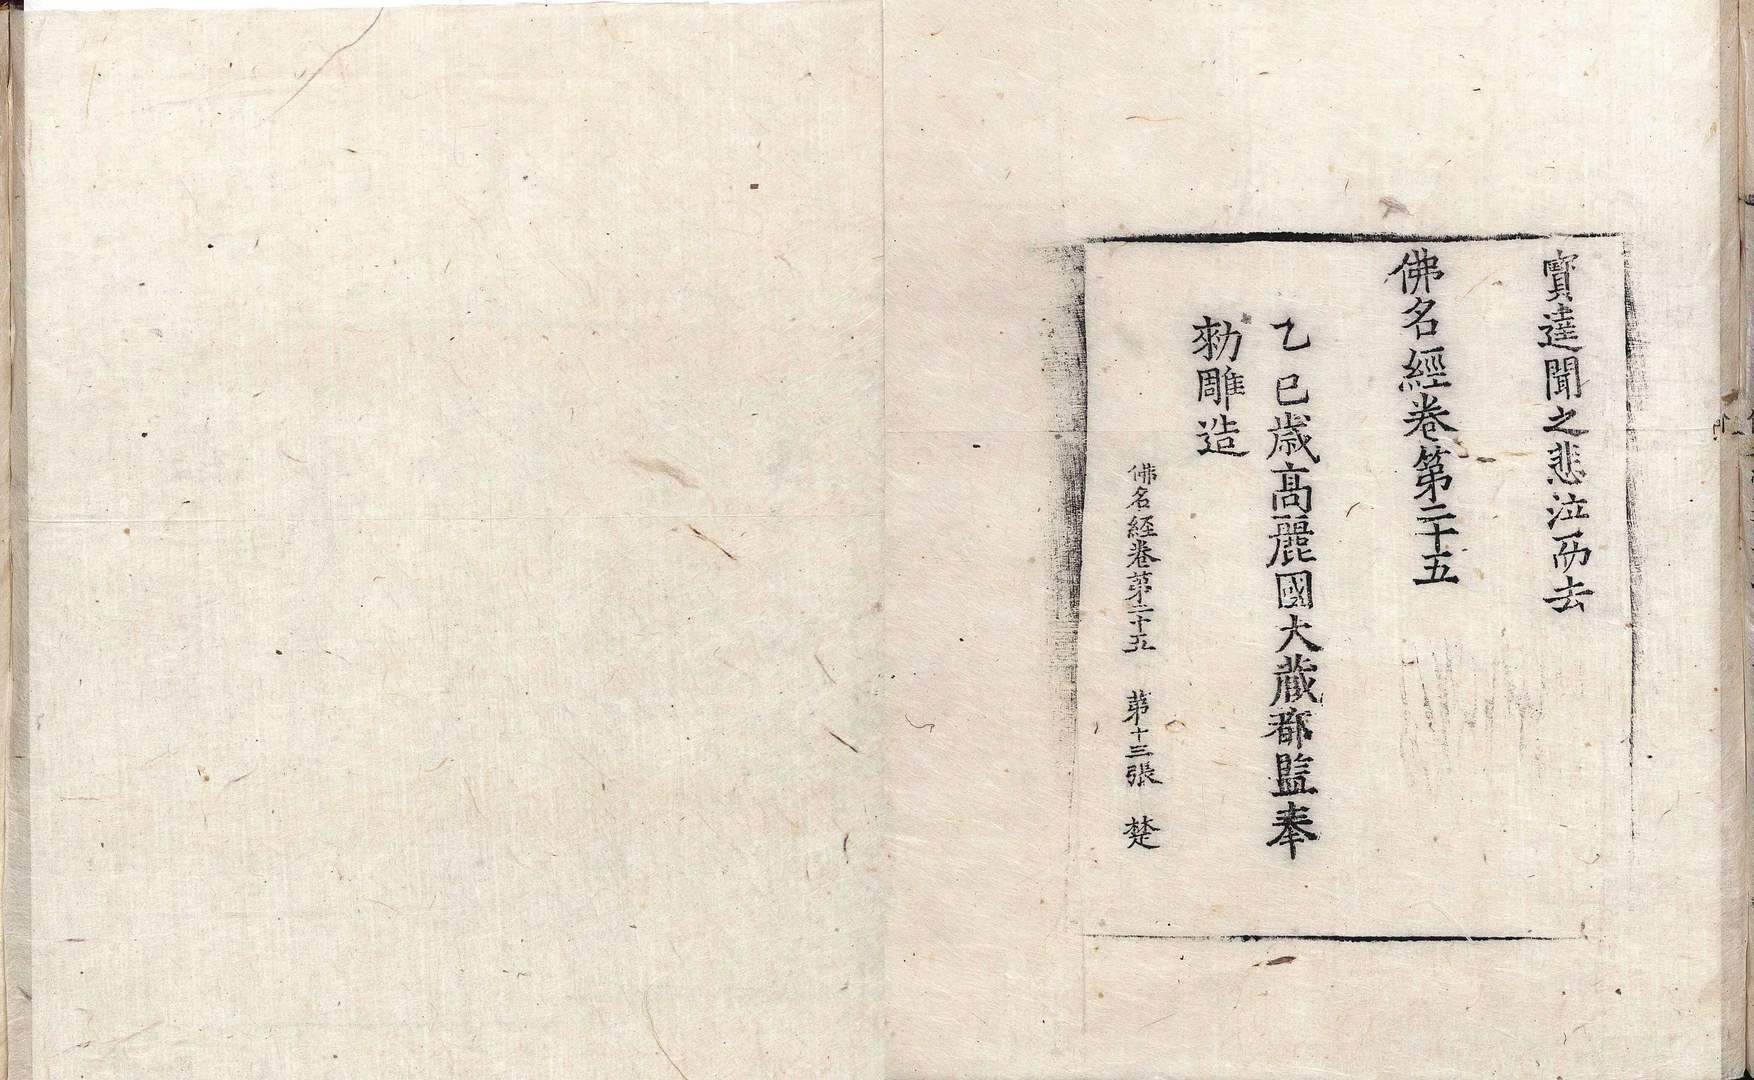 寶達聞之悲泣而去
佛名經卷第二十五
乙巳歳高麗國大藏都監奉
勑雕造
佛名経卷苐二十五 苐十三張 楚